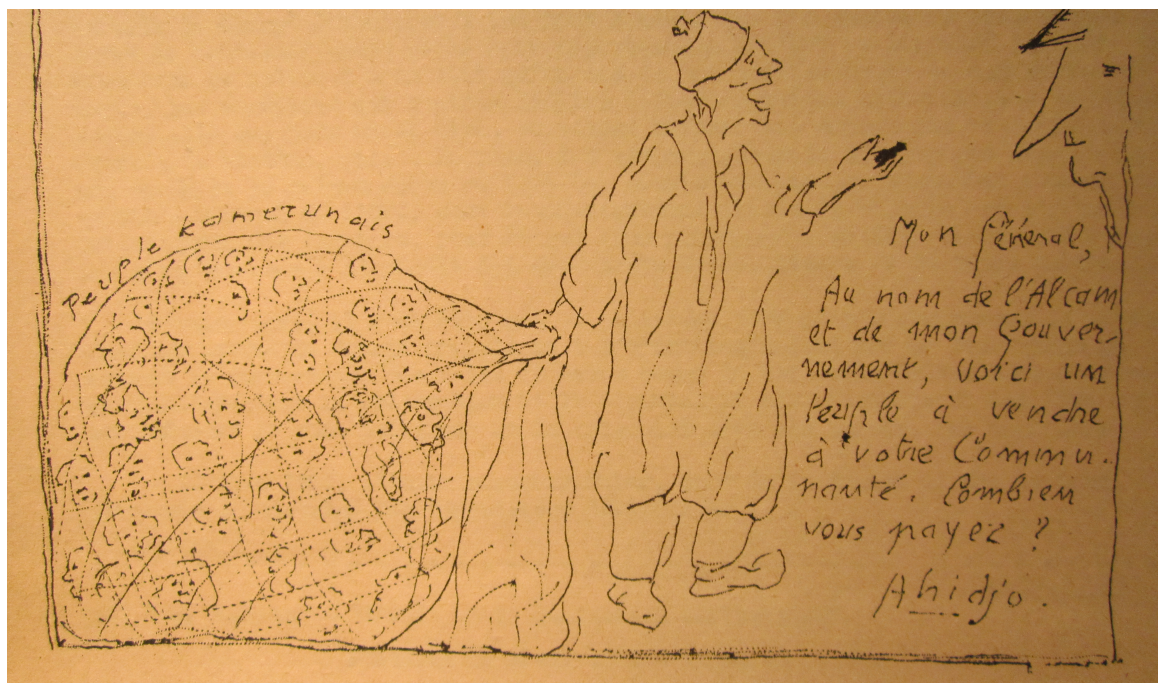 peuple kamerunais
Mon Général,
Au nom de l'Alcam
et de mon Gouver-
nement, voici un
Peuple à vendre
à votre Commu-
nauté. Combien
vous payez ?
Ahidjo.